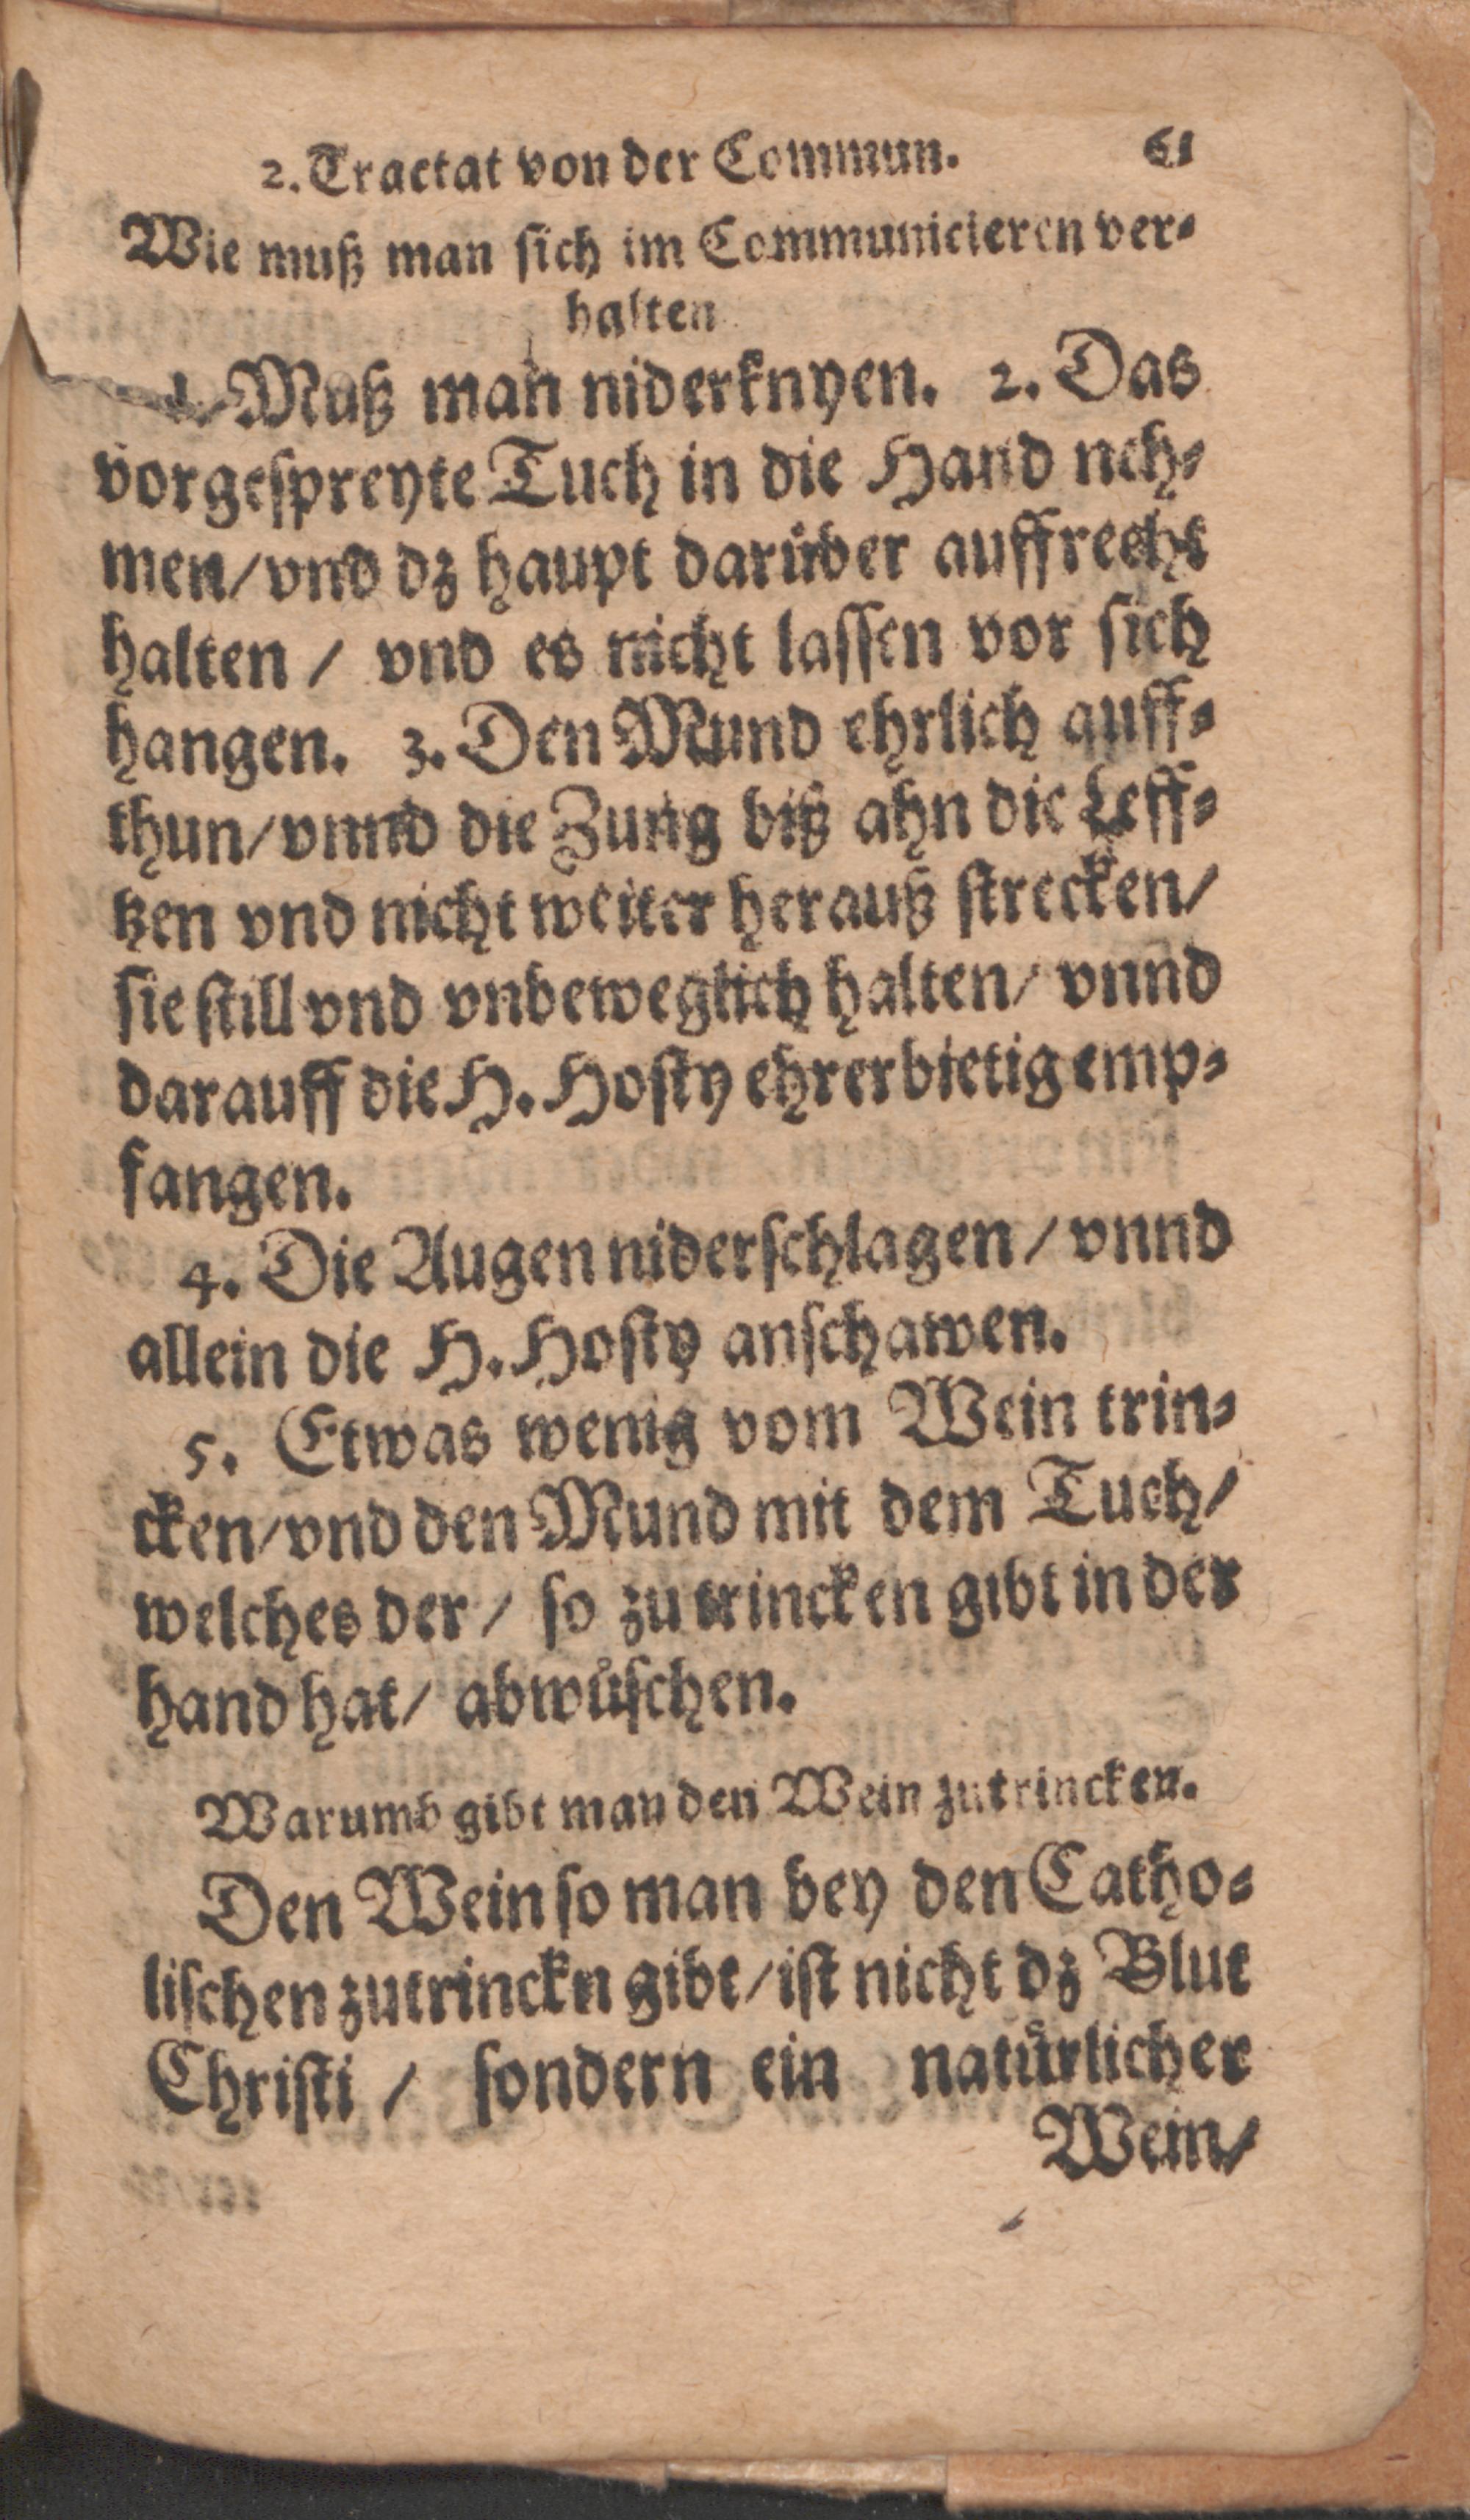 2. Tractat von der Commun. 61
Wie muß man sich im Communicieren ver-
halten
1. Muß man niderknyen. 2. Das
vorgespreyte Tuch in die Hand neh-
men/ vnd dz haupt darüber auffrecht
halten / vnd es nicht lassen vor sich
hangen. 3. Den Mund ehrlich auff-
thun/ vnnd die Zung biß ahn die Leff-
tzen vnd nicht weiter herauß strecken/
sie still vnd vnbeweglich halten/ vnnd
darauff die H. Hosty ehrerbietig emp-
fangen.
4. Die Augen niderschlagen / vnnd
allein die H. Hosty anschawen.
5. Etwas wenig vom Wein trin-
cken/ vnd den Mund mit dem Tuch/
welches der / so zu trincken gibt in der
hand hat/ abwüschen.
Warumb gibt man den Wein zutrincken.
Den Wein so man bey den Catho-
lischen zutrinckn gibt/ ist nicht dz Blut
Christi / sondern ein natürlicher
Wein/